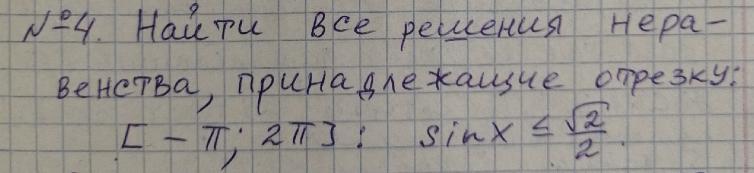 №4. Найти все решения нера-
венства, принадлежащие отрезку:
[-π; 2π]: sinx ≤ √2/2.